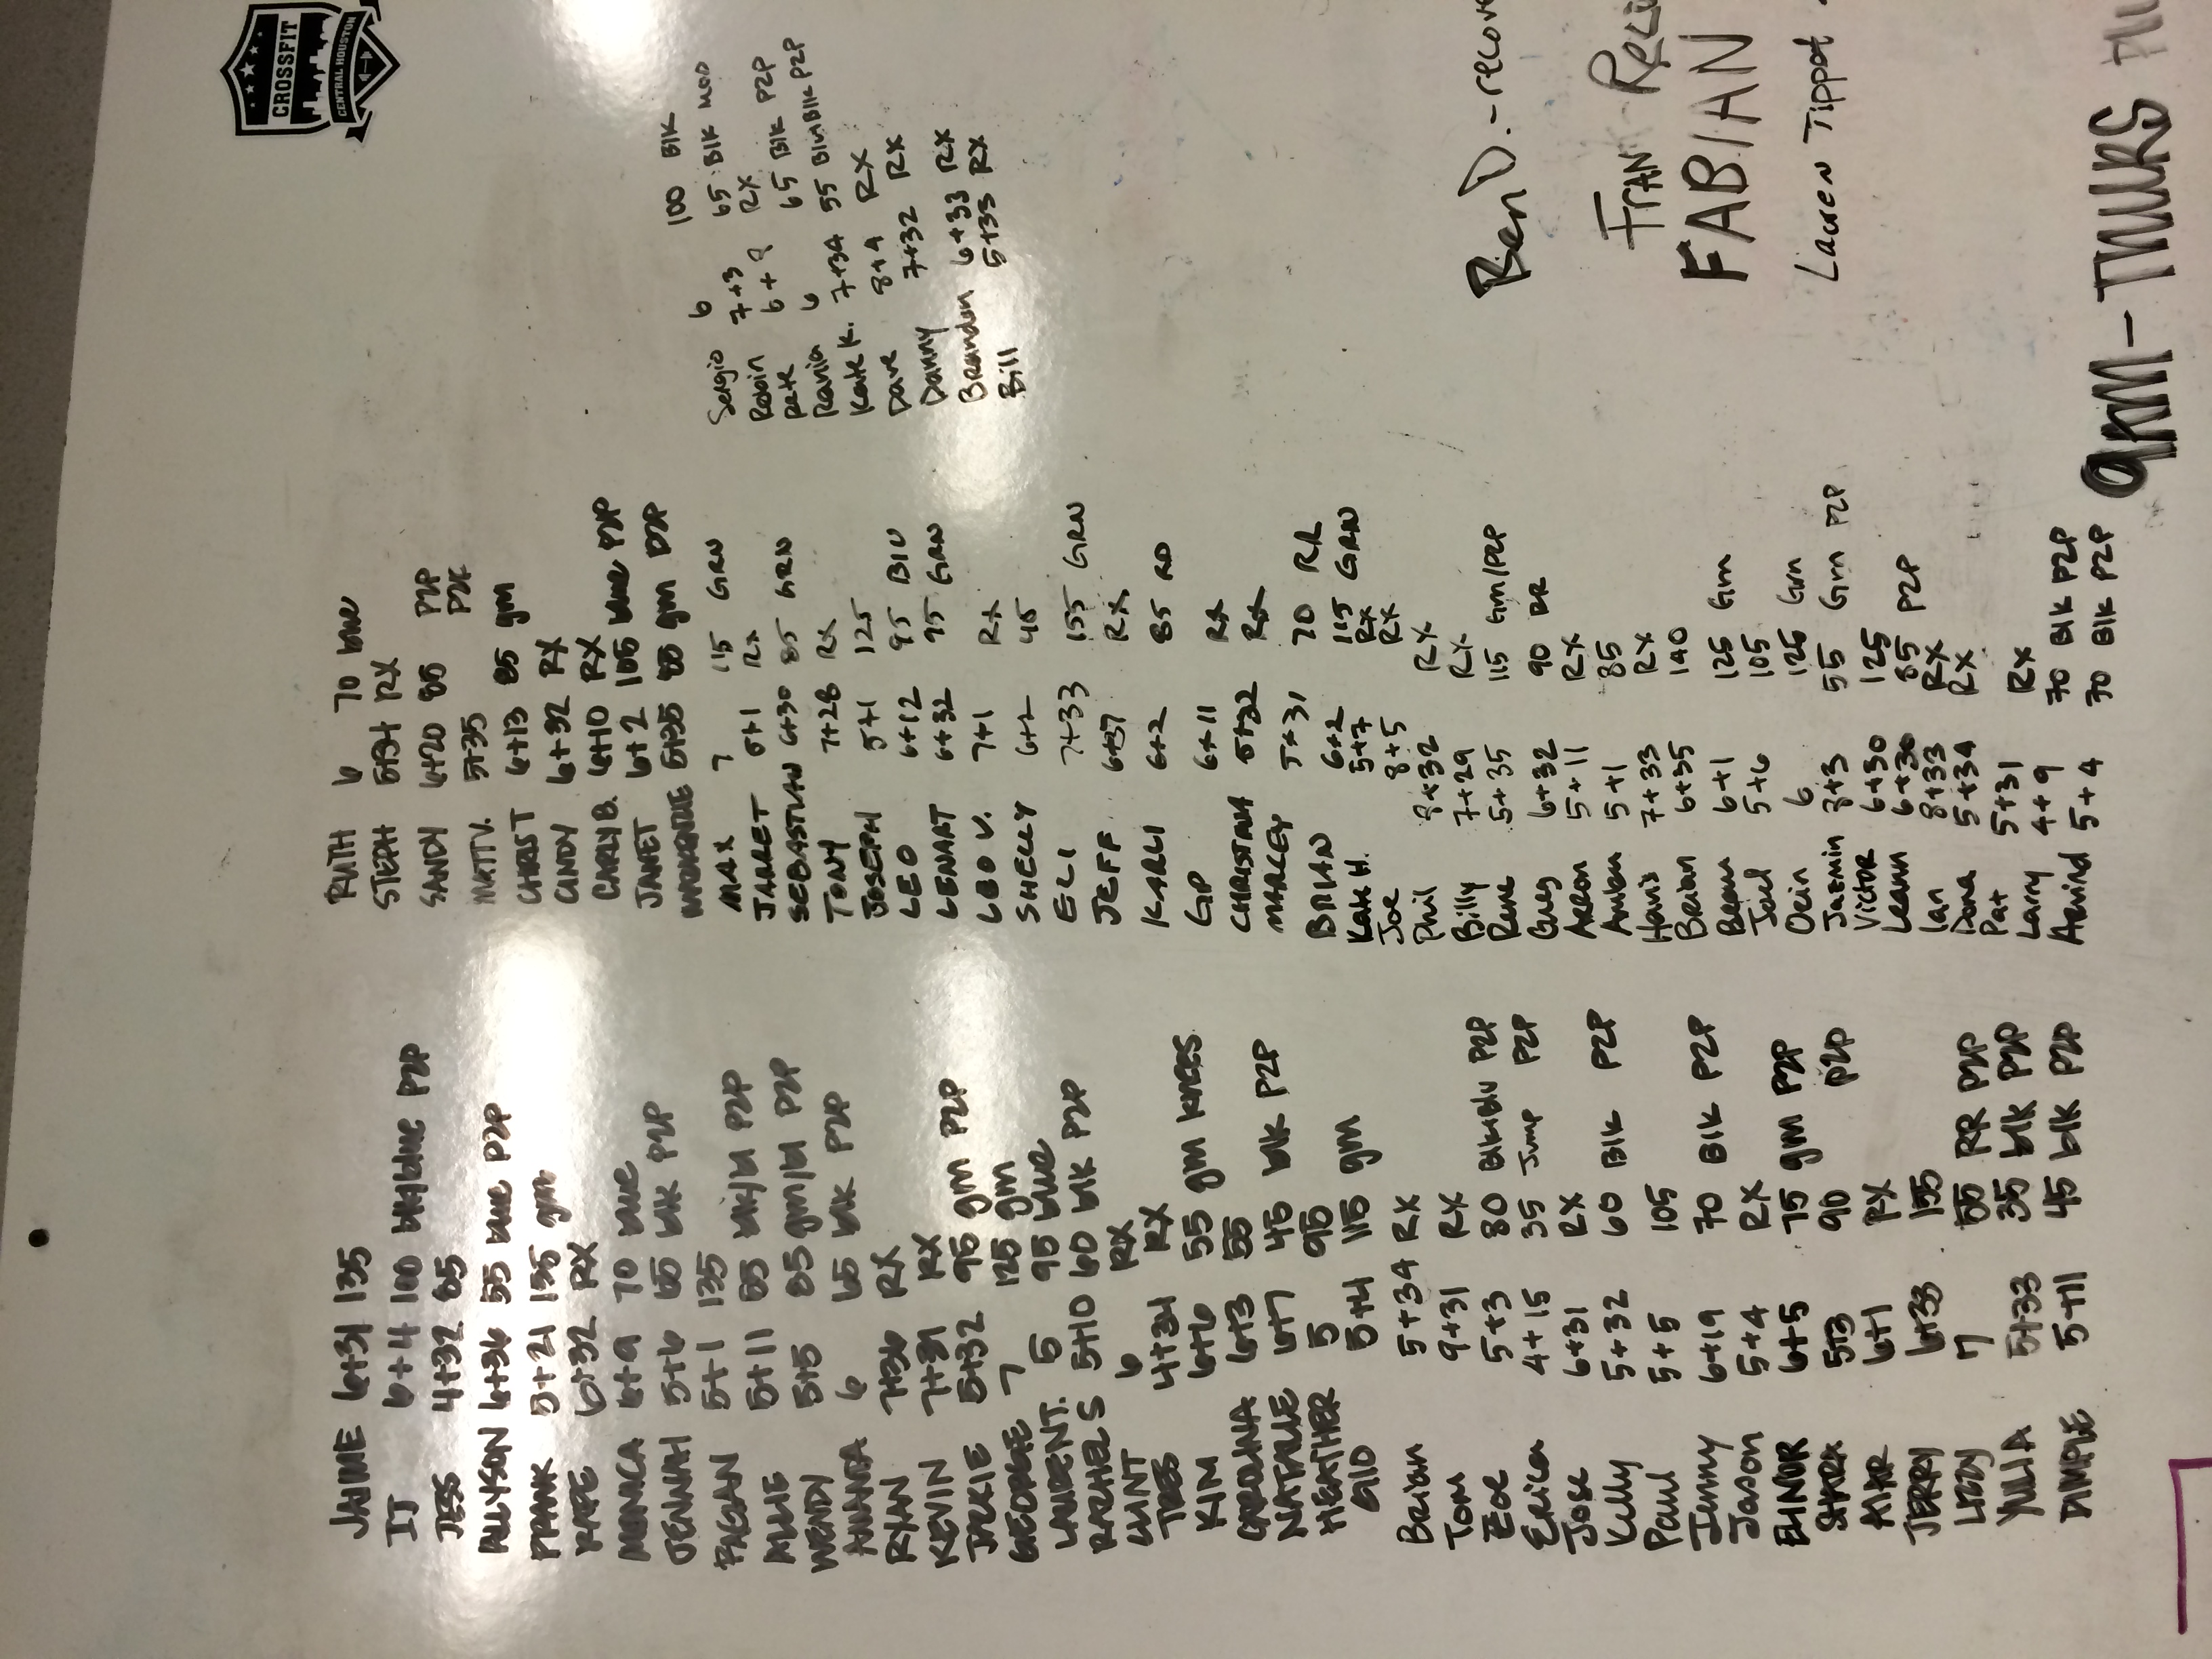 CROSSFIT
CENTRAL HOUSTON
JAIME 6+31 135
IJ 6+4 100 blk/blue P2P
JESS 4+32 85
ALLYSON 6+36 55 blue P2P
FRANK 5+21 135 grn
RAFE 6+32 RX
MONICA 6+9 70 blue
JENNAH 5+6 65 blk P2P
FAGAN 5+1 135
ALLIE 5+11 55 blk/bl P2P
WENDY 5+5 85 grn/bl P2P
6 65 blk P2P
RYAN 7+36 RX
KEVIN 7+31 RX
JACKIE 5+32 95 grn P2P
GEORGE 7 125 grn
LAUREN T. 5 95 blue
RACHEL S 5+10 60 blk P2P
CLINT 6 RX
TRES 4+34 RX
KIM 6+6 55 grn KNEES
CAROLINA 6+3 55
NATALIE 6+7 45 blk P2P
HEATHER 5 95
GIO 5+4 115 grn
Brian 5+34 RX
Tom 9+31 RX
Zoe 5+3 80 Blk+Blu P2P
Erica 4+15 35 Jump P2P
Jose 6+31 RX
Kelly 5+32 60 Blk P2P
Paul 5+5 105
Jenny 6+19 70 Blk P2P
Jason 5+4 RX
ELINOR 6+5 75 grn P2P
5+3 90 P2P
6+1 RX
JERRY 6+33 135
LIZDY 7 55 RR P2P
YULIA 5+33 35 blk P2P
DIMPLE 5+11 45 blk P2P
RUTH 6 70 blue
STEPH 5+34 RX
SANDY 6+20 85 P2P
MATT V. 5+35 P2K
CHRIS T 6+13 85 grn
CINDY 6+32 RX
CARLY B. 6+10 RX
JANET 6+2 105 blue P2P
5+35 85 grn P2P
MAX 7 115 GRN
JARRET 5+1 RX
SEBASTIAN 6+30 85 GRN
TONY 7+28 RX
JOSEPH 5+1 125
LEO 6+12 95 BLU
LENART 6+32 95 GRN
LEO V. 7+1 RX
SHELLY 6+2 45
ELI 7+33 155 GRN
JEFF 6+37 RX
KARLI 6+2 85 RD
GP 6+11 RX
CHRISTINA 5+32 RX
MARLEY 5+31 70 RR
BRIAN 6+2 115 GRN
Kate H. 5+7 RX
Joe 8+5 RX
Phil 8+32 RX
Billy 7+29 RX
Rene 5+35 115 Grn/P2P
Greg 6+32 90 RR
Aaron 5+11 RX
Amber 5+1 85
Haris 7+33 RX
Brian 6+35 140
Beau 6+1 125 Grn
Joel 5+6 105
Ocin 6 125 Grn
Jazmin 8+3 55 Grn P2P
Victor 6+30 125
Leann 6+30 85 P2P
Ian 8+33 RX
Dona 5+34 RX
Pat 5+31
Larry 4+9 RX
Arvind 5+4 70 Blk P2P
70 Blk P2P
Sergio 6 100 Blk
Robin 7+3 65 Blk mod
Pete 6+? RX
Rania 6 65 Blk P2P
Kate K. 7+34 55 Blu Blk P2P
Dave 8+4 RX
Danny 7+32 RX
Brandon 6+33 RX
Bill 5+35 RX
Ben D. - recove
FRAN - Reci
FABIAN
Lauren Tippet
9AM - THURS